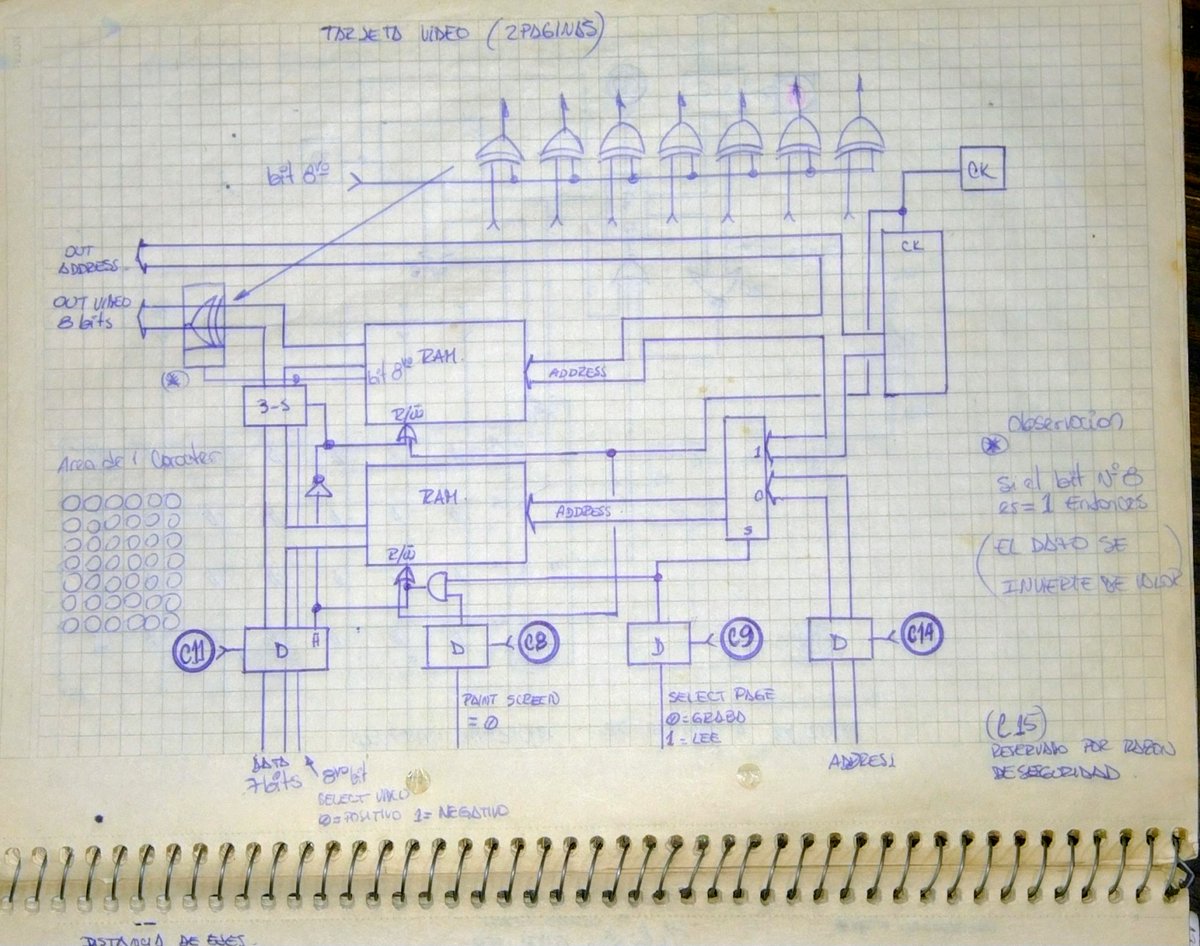 TARJETA VIDEO (2 PAGINAS)
bit 8vo
CK
CK
OUT
ADDRESS
OUT VIDEO
8 bits
RAM.
ADDRESS
bit 8vo
3-S
R/W
1
0
S
Observacion
Si el bit Nº8
es = 1 Entonces
(EL DATO SE
INVIERTE DE VALOR)
Area de 1 Caracter
RAM.
ADDRESS
R/W
C11
D
A
D
C8
D
C9
D
C14
PAINT SCREEN
= 0
SELECT PAGE
0=GRABA
1=LEE
(C15)
RESERVADO POR RAZON
DE SEGURIDAD.
DATA
7 bits
8vo bit
SELECT VIDEO
0=POSITIVO 1=NEGATIVO
ADDRESS
DISTANCIA DE EJES